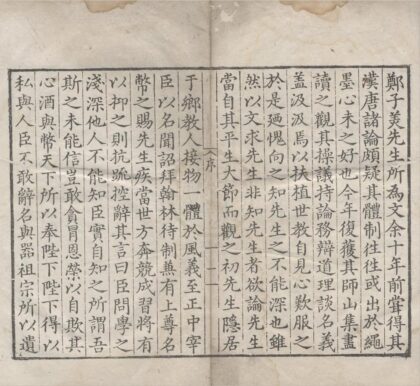 鄭子美先生所為文余十年前嘗得其
漢唐諸論頗疑其體制往往或出於繩
墨心未之好也今年復獲其師山集畫
讀之觀其操議持論務辯道理談名義
蓋汲汲焉以扶植世教自見心歎服之
於是廼愧向之知先生之不能深也雖
然以文求先生非知先生者欲論先生
當自其平生大節而觀之初先生隱居
序 一
于鄉教人接物一體於風義至正中宰
臣以名聞詔拜翰林待制無有上尊名
幣之賜先生疾當世方奔競成習將有
以抑之則抗疏控辭其言曰臣問學之
淺深他人不能知臣實自知之所謂吾
斯之未能信豈敢貪冒恩榮以自欺其
心酒與幣天下所以奉陛下陛下得以
私與人臣不敢辭名與器祖宗所以遺